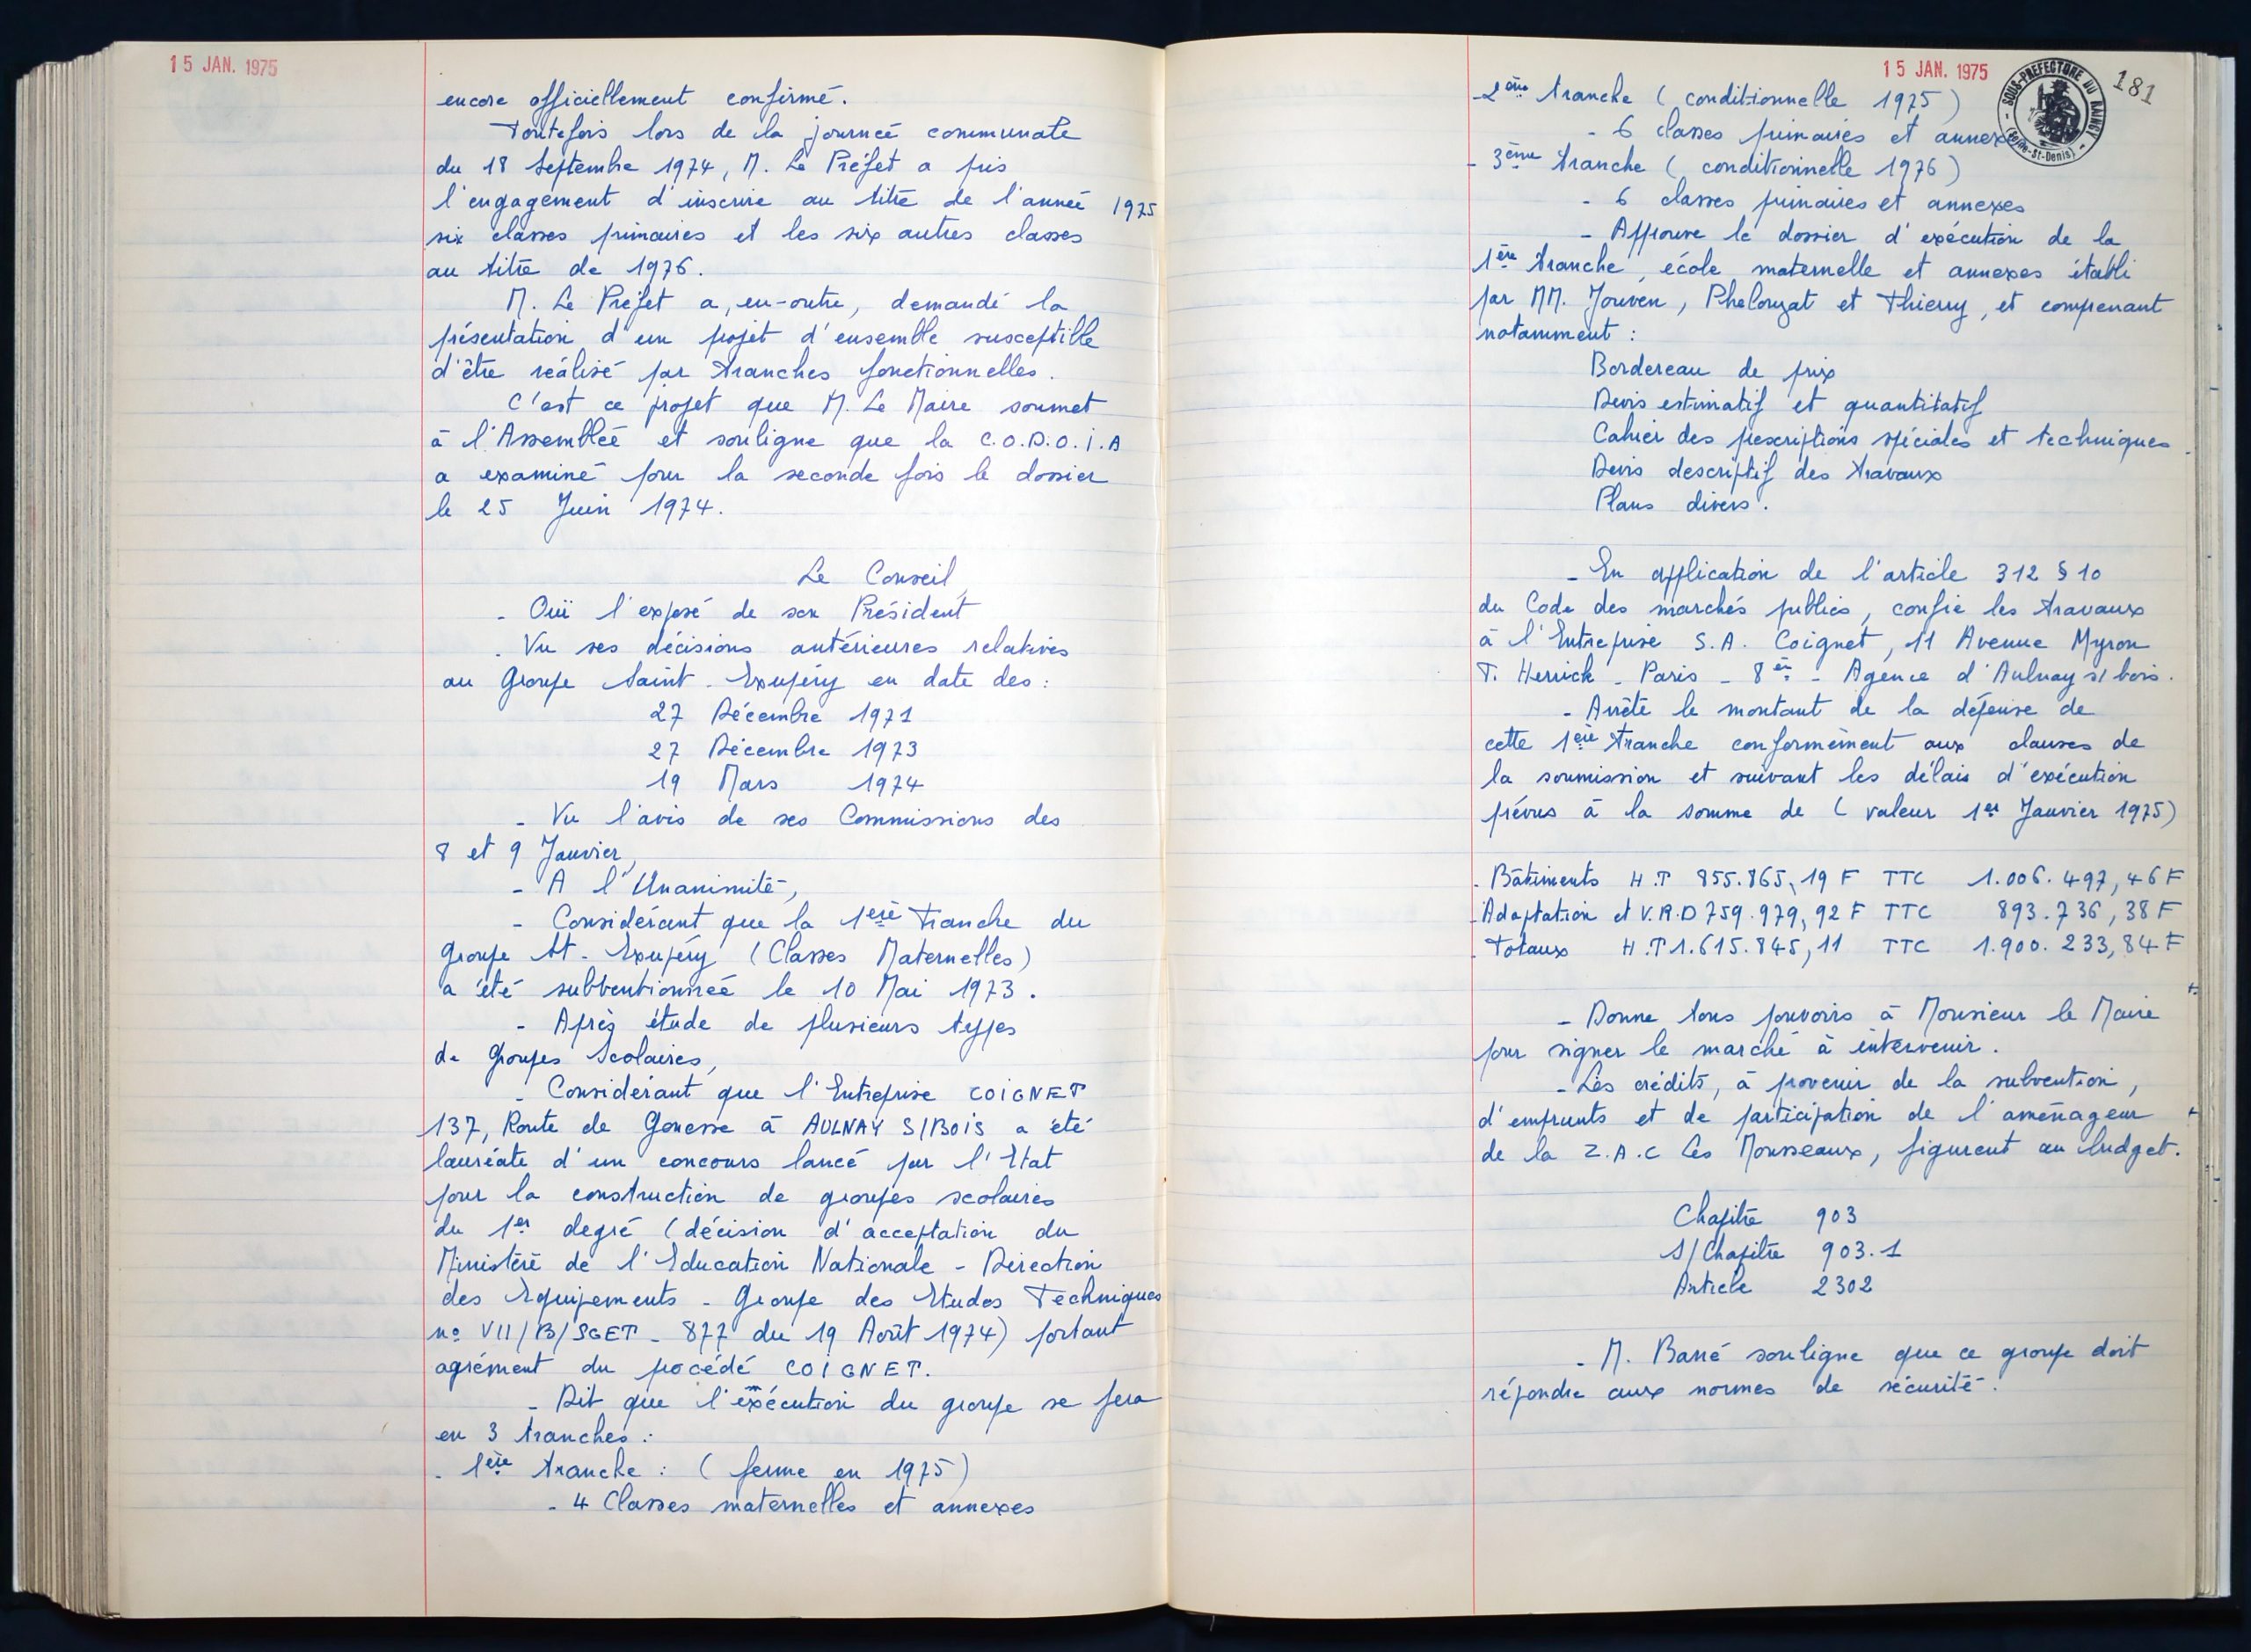 15 JAN. 1975
encore officiellement confirmé.
Toutefois lors de la journée communale
du 18 Septembre 1974, M. Le Préfet a pris
l'engagement d'inscrire au titre de l'année 1975
six classes primaires et les six autres classes
au titre de 1976.
M. Le Préfet a, en-outre, demandé la
présentation d'un projet d'ensemble susceptible
d'être réalisé par tranches fonctionnelles.
C'est ce projet que M. Le Maire soumet
à l'Assemblée et souligne que la C.O.D.O.I.A
a examiné pour la seconde fois le dossier
le 25 Juin 1974.
Le Conseil,
- Ouï l'exposé de son Président
- Vu ses décisions antérieures relatives
au Groupe Saint-Exupéry en date des :
27 Décembre 1971
27 Décembre 1973
19 Mars 1974
- Vu l'avis de ses Commissions des
8 et 9 Janvier,
- A l'Unanimité,
- Considérant que la 1ère Tranche du
Groupe St-Exupéry (Classes Maternelles)
a été subventionnée le 10 Mai 1973.
- Après étude de plusieurs types
de Groupes Scolaires,
- Considérant que l'Entreprise COIGNET
137, Route de Gonesse à AULNAY S/BOIS a été
lauréate d'un concours lancé par l'Etat
pour la construction de groupes scolaires
du 1er degré (décision d'acceptation du
Ministère de l'Education Nationale - Direction
des Equipements - Groupe des Etudes Techniques
n° VII/B/SGET - 877 du 19 Août 1974) portant
agrément du procédé COIGNET.
- Dit que l'exécution du groupe se fera
en 3 tranches :
- 1ère tranche : (ferme en 1975)
- 4 Classes maternelles et annexes
15 JAN. 1975
SOUS-PREFECTURE DU RAINCY
(Seine-St-Denis)
181
- 2ème tranche (conditionnelle 1975)
- 6 classes primaires et annexes
- 3ème tranche (conditionnelle 1976)
- 6 classes primaires et annexes
- Approuve le dossier d'exécution de la
1ère tranche, école maternelle et annexes établi
par MM. Jouven, Phelouzat et Thierry, et comprenant
notamment :
Bordereau de prix
Devis estimatif et quantitatif
Cahier des prescriptions spéciales et techniques
Devis descriptif des travaux
Plans divers.
- En application de l'article 312 § 10
du Code des marchés publics, confie les travaux
à l'Entreprise S.A. Coignet, 11 Avenue Myron
T. Herrick - Paris - 8è - Agence d'Aulnay s/ bois.
- Arrête le montant de la dépense de
cette 1ère tranche conformément aux clauses de
la soumission et suivant les délais d'exécution
prévus à la somme de (valeur 1er Janvier 1975)
- Bâtiments H.T 855.865,19 F TTC 1.006.497,46 F
- Adaptation et V.R.D 759.979,92 F TTC 893.736,38 F
- Totaux H.T 1.615.845,11 TTC 1.900.233,84 F
- Donne tous pouvoirs à Monsieur le Maire
pour signer le marché à intervenir.
- Les crédits, à provenir de la subvention,
d'emprunts et de participation de l'aménageur
de la Z.A.C Les Mousseaux, figurent au budget.
Chapitre 903
S/Chapitre 903.1
Article 2302
- M. Barré souligne que ce groupe doit
répondre aux normes de sécurité.